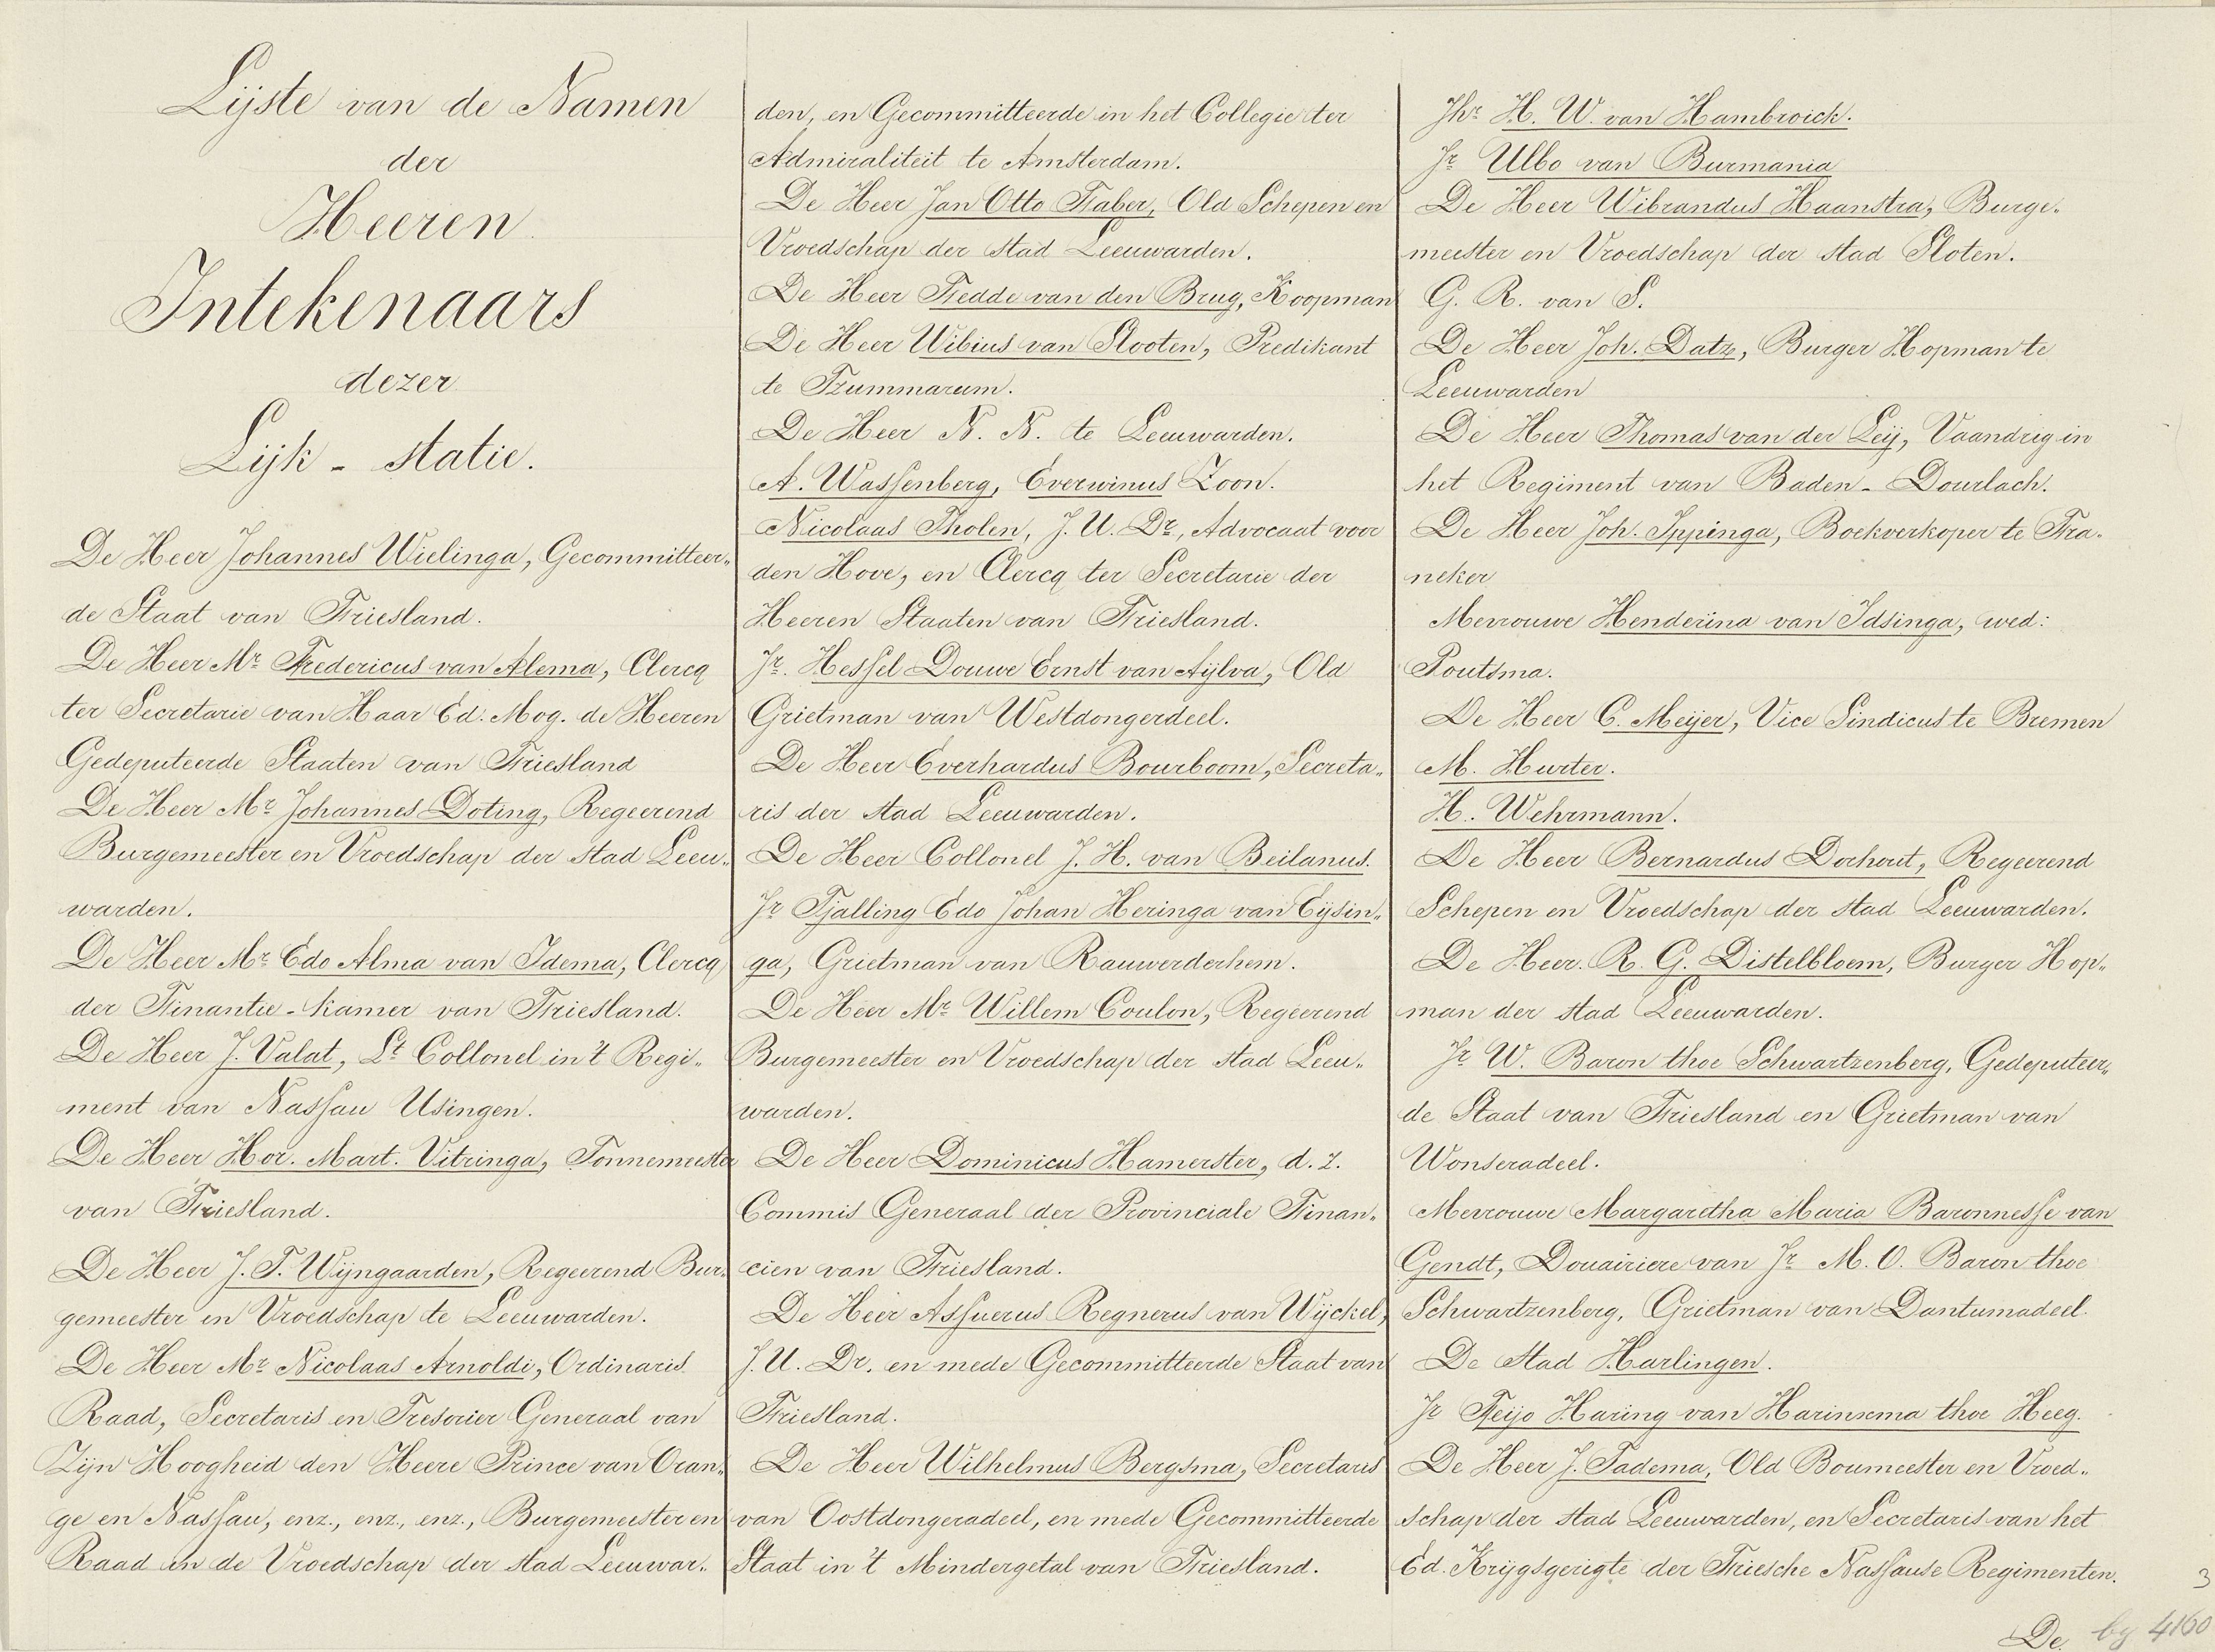 Lijste van de Namen
der
Heeren
Intekenaars
dezer
Lijk - statie.
De Heer Johannes Wielinga, Gecommitteer„
de Staat van Friesland.
De Heer Mr Fredericus van Alema, Clercq
ter Secretarie van Haar Ed. Mog. de Heeren
Gedeputeerde Staaten van Friesland
De Heer Mr Johannes Doting, Regeerend
Burgemeester en Vroedschap der stad Leeu„
warden.
De Heer Mr Edo Alma van Idema, Clercq
der Finantie-kamer van Friesland.
De Heer J. Valat, Lt Collonel in 't Regi„
ment van Nassau Usingen.
De Heer Hor. Mart. Vitringa, Tonnemeester
van Friesland.
De Heer J. T. Wijngaarden, Regeerend Bur„
gemeester en Vroedschap te Leeuwarden.
De Heer Mr Nicolaas Arnoldi, Ordinaris
Raad, Secretaris en Tresorier Generaal van
Zijn Hoogheid den Heere Prince van Oran„
ge en Nassau, enz., enz., enz., Burgemeester en
Raad in de Vroedschap der stad Leeuwar„
den, en Gecommitteerde in het Collegie ter
Admiraliteit te Amsterdam.
De Heer Jan Otto Faber, Old Schepen en
Vroedschap der stad Leeuwarden.
De Heer Fedde van den Brug, Koopman
De Heer Wibius van Slooten, Predikant
te Tzummarum.
De Heer N. N. te Leeuwarden.
A. Wassenberg, Everwinus Zoon.
Nicolaas Tholen, J. U. Dr, Advocaat voor
den Hove, en Clercq ter Secretarie der
Heeren Staaten van Friesland.
Jr. Hessel Douwe Ernst van Aijlva, Old
Grietman van Westdongerdeel.
De Heer Everhardus Bourboom, Secreta„
ris der stad Leeuwarden.
De Heer Collonel J. H. van Beilanus.
Jr Tjalling Edo Johan Heringa van Eijsin„
ga, Grietman van Rauwerderhem.
De Heer Mr Willem Coulon, Regeerend
Burgemeester en Vroedschap der stad Leeu„
warden.
De Heer Dominicus Hamerster, d. Z.
Commis Generaal der Provinciale Finan„
cien van Friesland.
De Heer Assuerus Regnerus van Wijckel,
J. U. Dr. en mede Gecommitteerde Staat van
Friesland.
De Heer Wilhelmus Bergsma, Secretaris
van Oostdongeradeel, en mede Gecommitteerde
Staat in 't Mindergetal van Friesland.
Jhr H. W. van Hambroick.
Jr Ulbo van Burmania
De Heer Wibrandus Haanstra, Burge„
meester en Vroedschap der stad Sloten.
G. R. van S.
De Heer Joh. Datz, Burger Hopman te
Leeuwarden
De Heer Thomas van der Leij, Vaandrig in
het Regiment van Baden-Dourlach.
De Heer Joh. Ippinga, Boekverkoper te Fra„
neker
Mevrouwe Henderina van Idsinga, wed:
Poutsma.
De Heer C. Meijer, Vice Sindicus te Bremen
M. Hurter.
H. Wehrmann.
De Heer Bernardus Dorhout, Regeerend
Schepen en Vroedschap der stad Leeuwarden.
De Heer. R. G. Distelbloem, Burger Hop„
man der stad Leeuwarden.
Jr W. Baron thoe Schwartzenberg, Gedeputeer„
de Staat van Friesland en Grietman van
Wonseradeel.
Mevrouwe Margaretha Maria Baronnesse van
Gendt, Douairiere van Jr M. O. Baron thoe
Schwartzenberg, Grietman van Dantumadeel.
De stad Harlingen.
Jr Feijo Haring van Harinxma thoe Heeg.
De Heer J. Tadema, Old Boumeester en Vroed„
schap der stad Leeuwarden, en Secretaris van het
Ed. Krijgsgerigte der Friesche Nassause Regimenten.
3
De by 4160